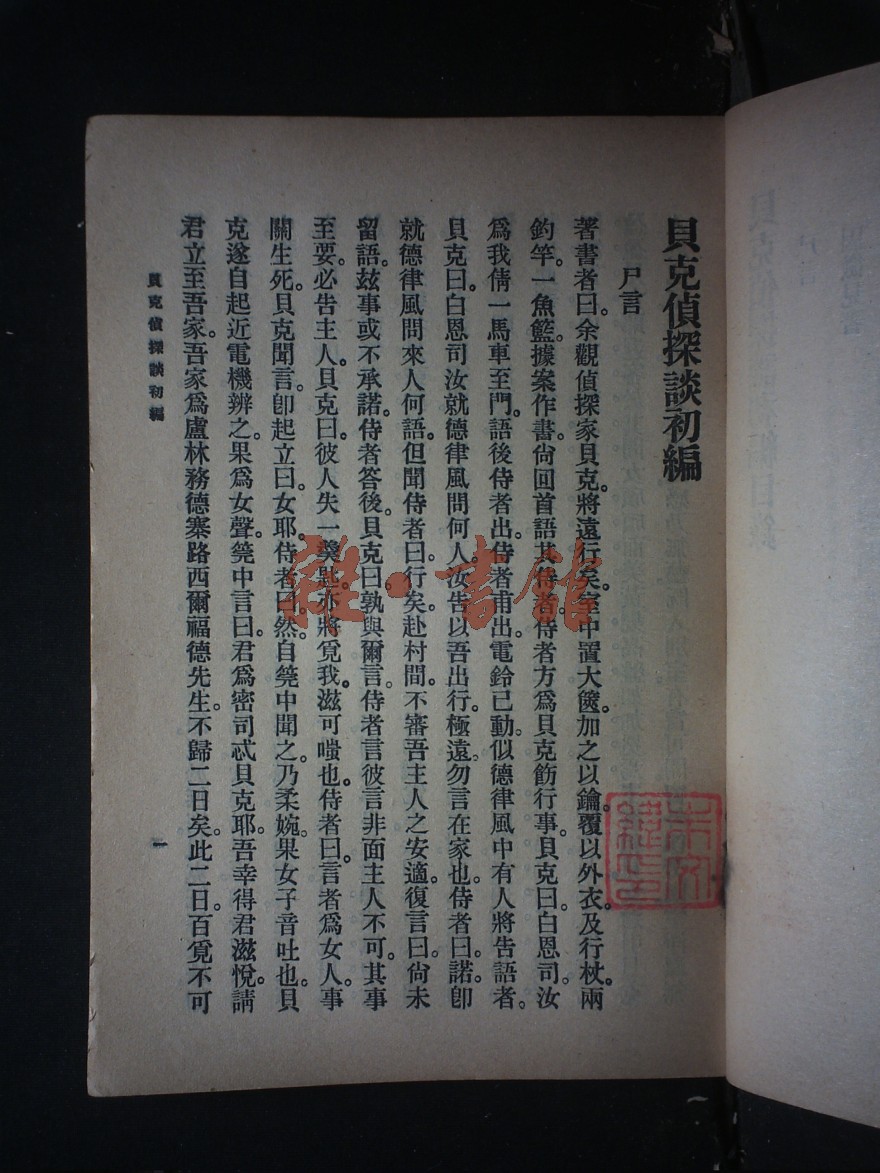 貝克偵探談初編
尸言
著書者曰。余觀偵探家貝克。將遠行矣。室中置大篋。加之以鑰。覆以外衣。及行杖。兩
釣竿。一魚籃。據案作書。尙回首語其侍者。侍者方爲貝克飭行事。貝克曰。白恩司。汝
爲我倩一馬車至門。語後侍者出。侍者甫出。電鈴已動。似德律風中有人將告語者。
貝克曰。白恩司。汝就德律風問何人。汝告以吾出行。極遠。勿言在家也。侍者曰。諾。卽
就德律風問來人何語。但聞侍者曰。行矣。赴村間。不審吾主人之安適。復言曰。尙未
留語。茲事或不承諾。侍者答後。貝克曰。孰與爾言。侍者言彼言非面主人不可。其事
至要。必告主人。貝克曰。彼人失一羹匙。亦將覓我。滋可嗤也。侍者曰。言者爲女人。事
關生死。貝克聞言。卽起立曰。女耶。侍者曰。然。自筦中聞之。乃柔婉。果女子音吐也。貝
克遂自起近電機辨之。果爲女聲。筦中言曰。君爲密司忒貝克耶。吾幸得君滋悅。請
君立至吾家。吾家爲盧林務德寨路西爾福德先生。不歸二日矣。此二日。百覓不可
貝克偵探談初編
一
雜·書館